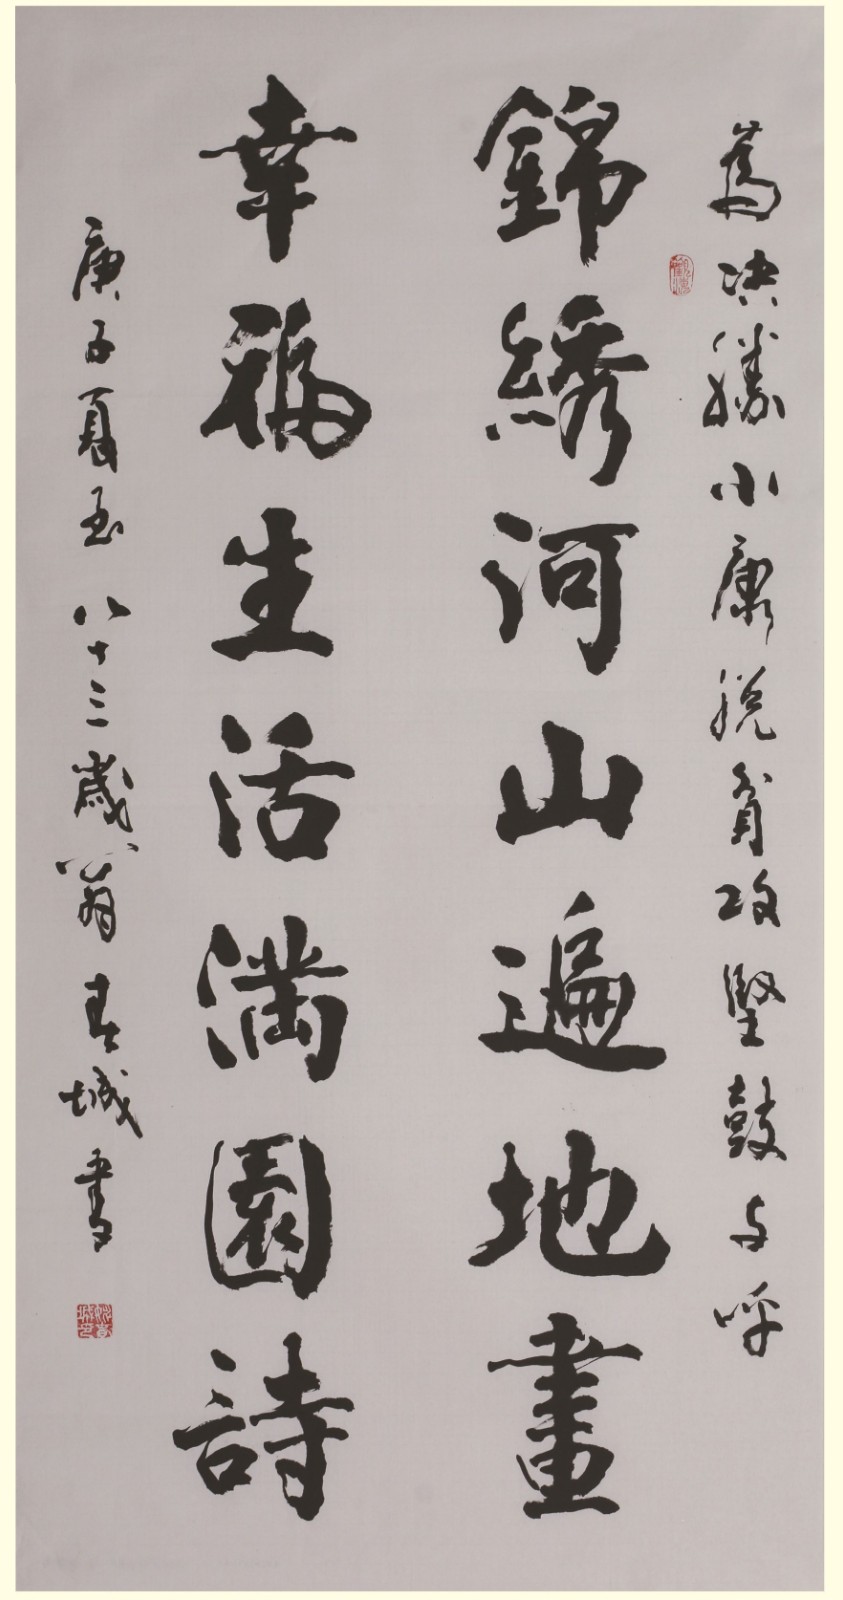 為决勝小康脱貧攻堅鼓与呼
錦綉河山遍地畫
幸福生活满園詩
庚子夏至八十三歲翁春城書